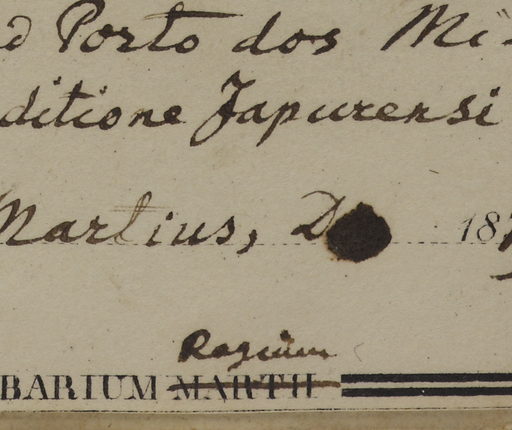 Porto dos Mi-
ditione Japurensi
Martius, D 18
Regium
BARIUM MARTII